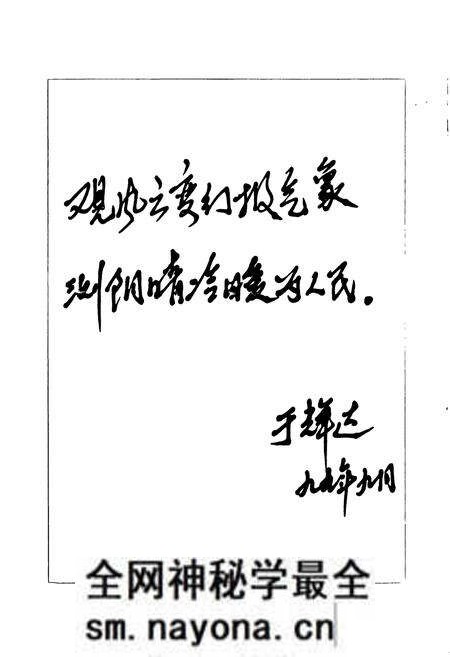 观风云变幻报气象
测阴晴冷暖为人民。
于辉达
九九年九月
全网神秘学最全
sm.nayona.cn